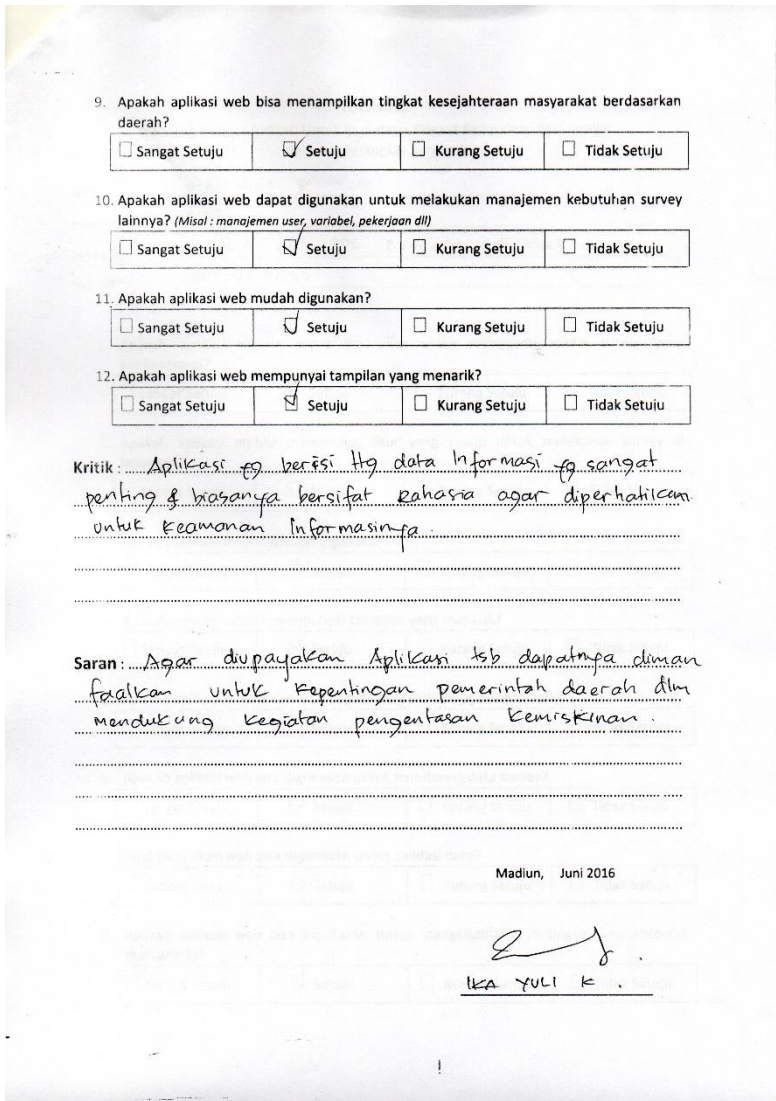 9. Apakah aplikasi web bisa menampilkan tingkat kesejahteraan masyarakat berdasarkan
daerah?
☐ Sangat Setuju ☑ Setuju ☐ Kurang Setuju ☐ Tidak Setuju
10. Apakah aplikasi web dapat digunakan untuk melakukan manajemen kebutuhan survey
lainnya? (Misal : manajemen user, variabel, pekerjaan dll)
☐ Sangat Setuju ☑ Setuju ☐ Kurang Setuju ☐ Tidak Setuju
11. Apakah aplikasi web mudah digunakan?
☐ Sangat Setuju ☑ Setuju ☐ Kurang Setuju ☐ Tidak Setuju
12. Apakah aplikasi web mempunyai tampilan yang menarik?
☐ Sangat Setuju ☑ Setuju ☐ Kurang Setuju ☐ Tidak Setuju
Kritik : Aplikasi yg berisi ttg data Informasi yg sangat
penting & biasanya bersifat Rahasia agar diperhatikan
untuk Keamanan Informasinya.
Saran : Agar diupayakan Aplikasi tsb dapatnya diman
faatkan untuk Kepentingan pemerintah daerah dlm
mendukung Kegiatan pengentasan Kemiskinan.
Madiun, Juni 2016
IKA YULI K.